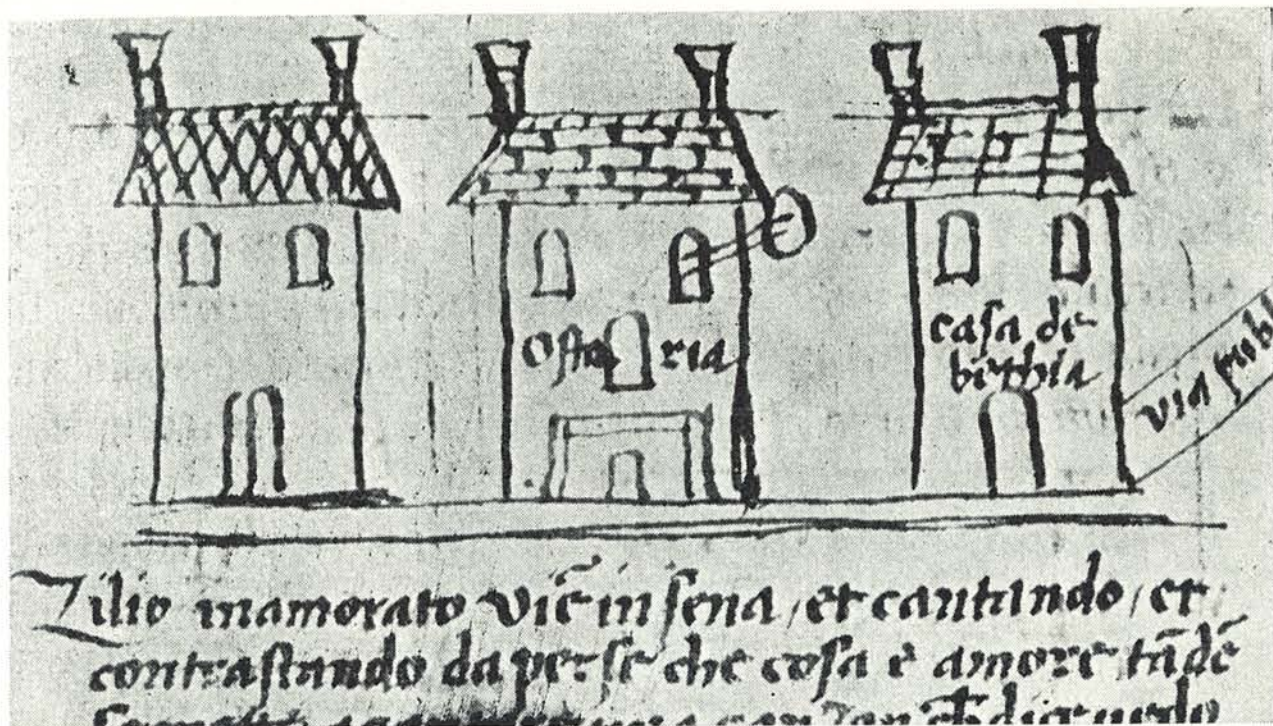 Osta ria
casa de
bethia
via publ
Zilio inamorato viē in sena, et cantando, et
contrastando da per se che cosa è amore tādē
una canzon